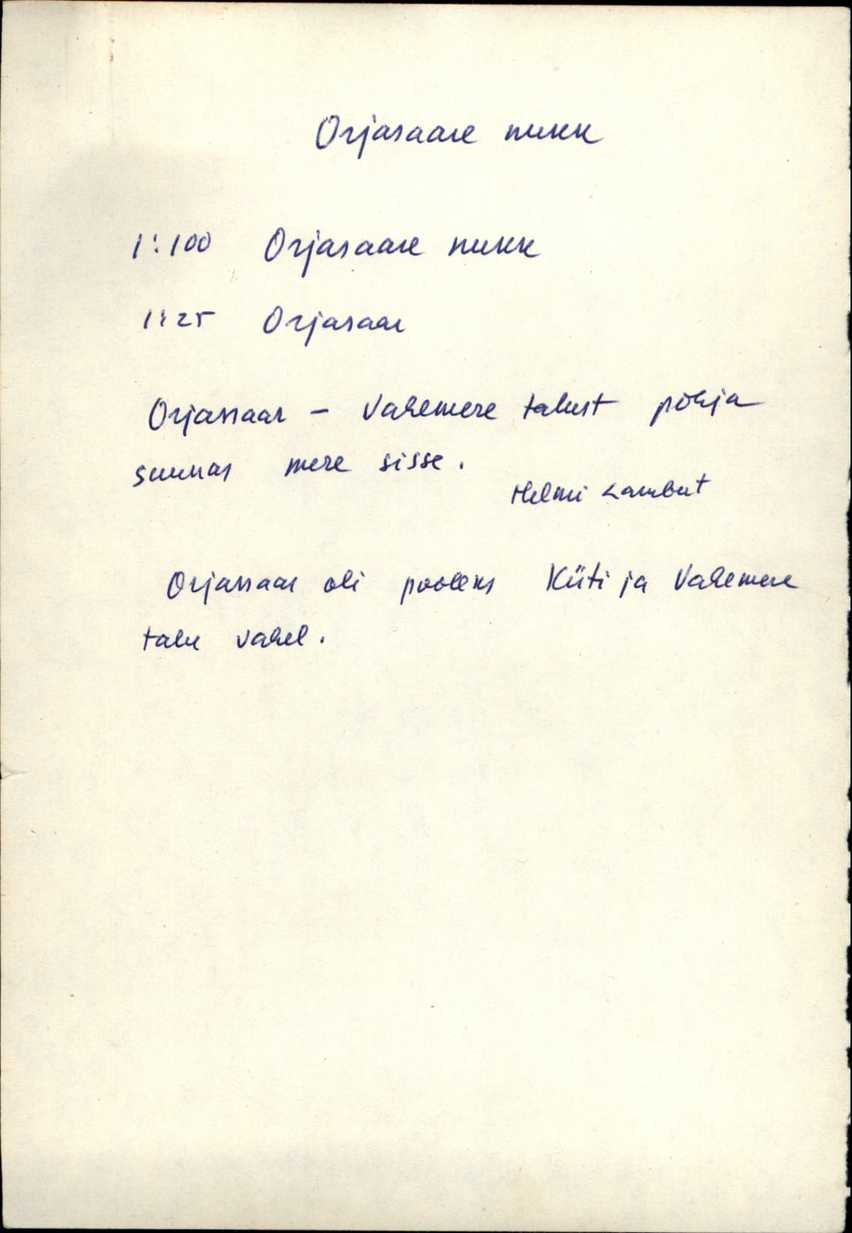 Orjasaare nukk
1:100 Orjasaare nukk
1:25 Orjasaar
Orjassaar - Vahemere talust põhja
suunas mere sisse.
Helmi Lambut
Orjassaar oli pooleks Küti ja Vahemere
talu vahel.